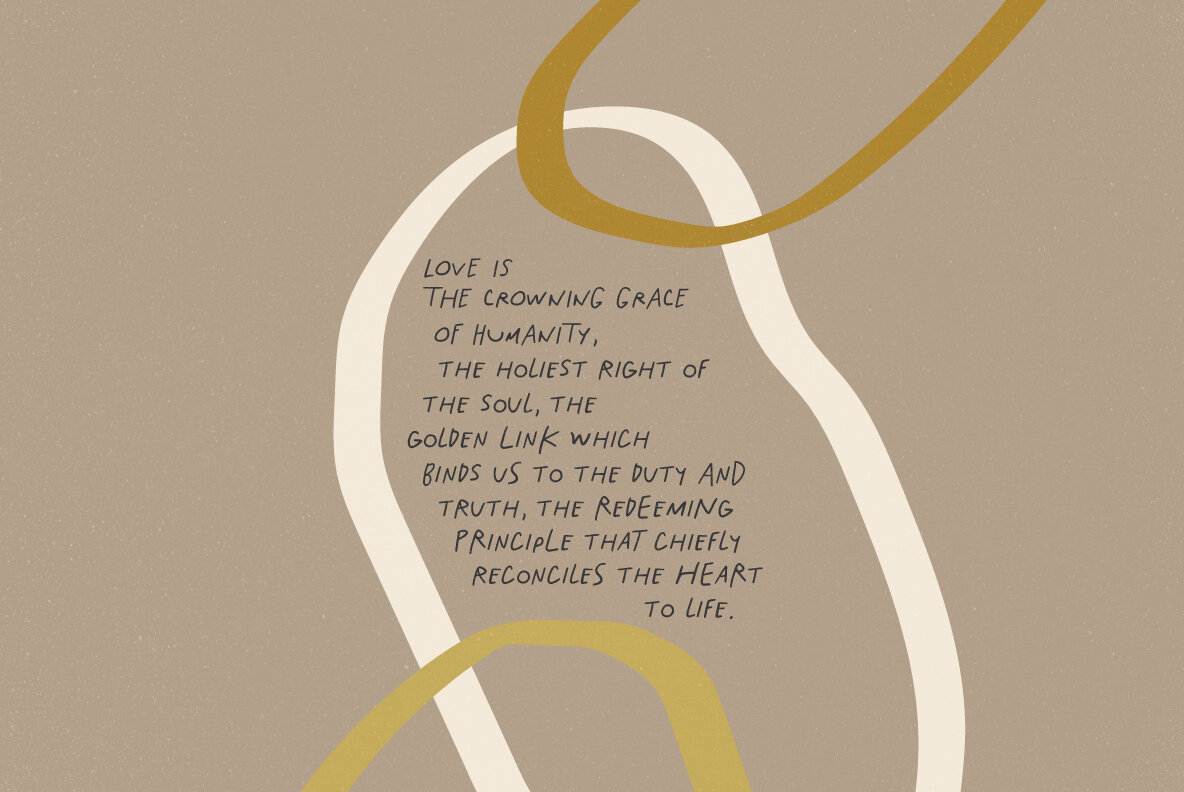 LOVE IS
THE CROWNING GRACE
OF HUMANITY,
THE HOLIEST RIGHT OF
THE SOUL, THE
GOLDEN LINK WHICH
BINDS US TO THE DUTY AND
TRUTH, THE REDEEMING
PRINCIPLE THAT CHIEFLY
RECONCILES THE HEART
TO LIFE.